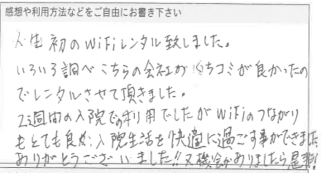 感想や利用方法などをご自由にお書き下さい
人生初のWifiレンタル致しました。
いろいろ調べこちらの会社が口コミが良かったの
でレンタルさせて頂きました。
2週間の入院での利用でしたがWifiのつながり
もとても良く、入院生活を快適に過ごす事ができました
ありがとうございました!!又機会がありましたら是非!